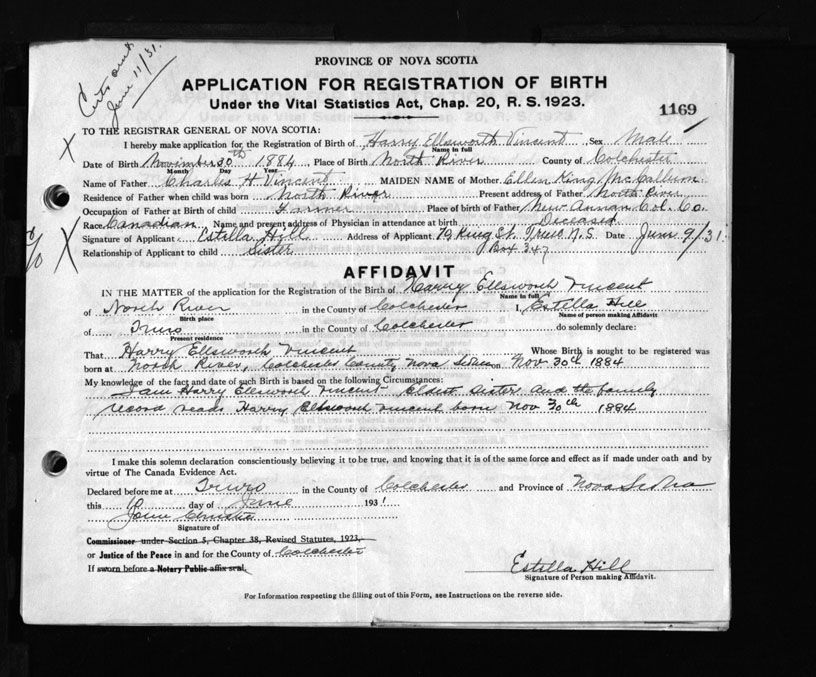 June 11/31.
PROVINCE OF NOVA SCOTIA
APPLICATION FOR REGISTRATION OF BIRTH
Under the Vital Statistics Act, Chap. 20, R. S. 1923.
1169
TO THE REGISTRAR GENERAL OF NOVA SCOTIA:
I hereby make application for the Registration of Birth of Harry Ellsworth Vincent, Sex Male
Name in full
Date of Birth November 30th 1884 Place of Birth North River County of Colchester
Month Day Year
Name of Father Charles H Vincent MAIDEN NAME of Mother Ellen King McCallum
Residence of Father when child was born North River Present address of Father North River
Occupation of Father at Birth of child Farmer Place of birth of Father New Annan Col. Co.
Race Canadian Name and present address of Physician in attendance at birth Deceased
Signature of Applicant Estella Hill Address of Applicant 79 King St. Truro N. S Date June 9/31.
Relationship of Applicant to child Sister Box 347
AFFIDAVIT
IN THE MATTER of the application for the Registration of the Birth of Harry Ellsworth Vincent
Name in full
of North River in the County of Colchester I, Estella Hill
Birth place Name of person making Affidavit
of Truro in the County of Colchester do solemnly declare:
Present residence
That Harry Ellsworth Vincent Whose Birth is sought to be registered was
born at North River, Colchester County, Nova Scotia on Nov 30th 1884
My knowledge of the fact and date of such Birth is based on the following Circumstances:
I am Harry Ellsworth Vincent Eldest Sister and the family
record reads Harry Ellsworth Vincent born Nov 30th 1884
I make this solemn declaration conscientiously believing it to be true, and knowing that it is of the same force and effect as if made under oath and by
virtue of The Canada Evidence Act.
Declared before me at Truro in the County of Colchester and Province of Nova Scotia
this day of June 1931
Signature of
Commissioner under Section 5, Chapter 38, Revised Statutes, 1923,
or Justice of the Peace in and for the County of Colchester
If sworn before a Notary Public affix seal.
Estella Hill
Signature of Person making Affidavit.
For Information respecting the filling out of this Form, see Instructions on the reverse side.